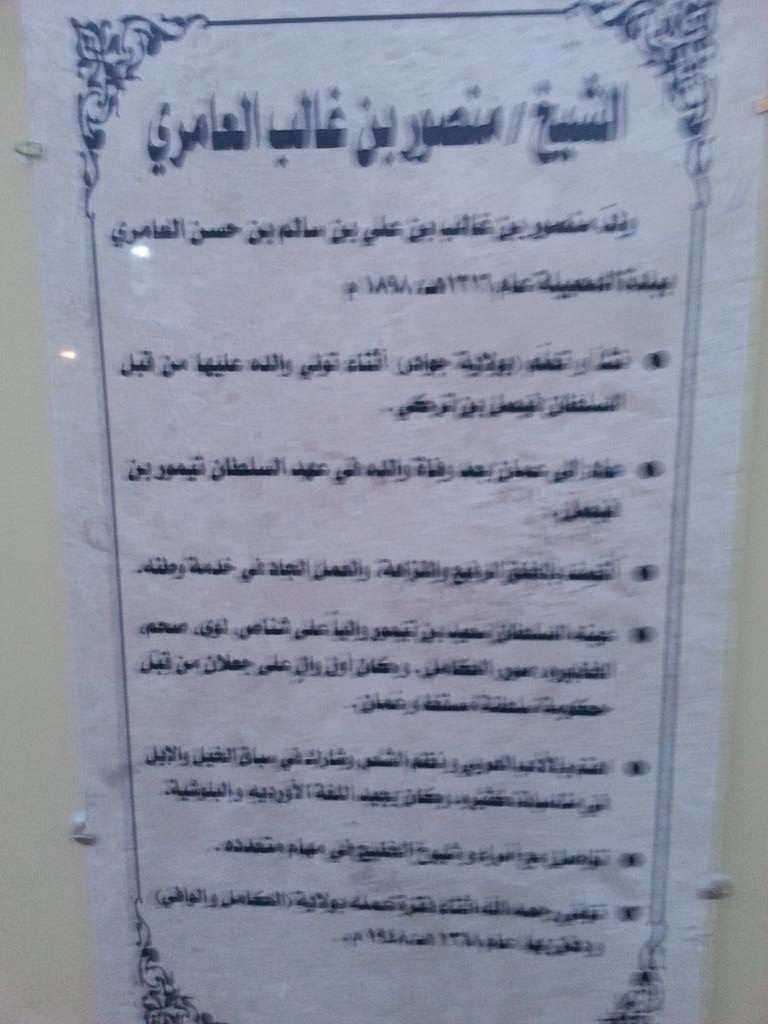 الشيخ / منصور بن غالب العامري
ولد منصور بن غالب بن علي بن سالم بن حسن العامري
ببلدة عام ١٣١٦هـ/ ١٨٩٨ م
نشأ وتعلم (بولاية جوادر) أثناء تولي والده عليها من قبل
السلطان فيصل بن تركي.
عاد إلى عمان بعد وفاة والده في عهد السلطان تيمور بن
فيصل.
بالخلق الرفيع والنزاهة، والعمل الجاد في خدمة وطنه.
عينه السلطان سعيد بن تيمور والياً على شناص، لوى، صحم،
صور، الكامل، وكان أول والٍ على جعلان من قِبَل
حكومة سلطنة مسقط وعمان.
اهتم بالأدب العربي ونظم الشعر وشارك في سباق الخيل والإبل
في مناسبات كثيره، وكان يجيد اللغة الأورديه والبلوشية.
تواصل مع أمراء وشيوخ الخليج في مهام متعدده.
توفي رحمه الله أثناء فترة عمله بولاية (الكامل والوافي)
ودفن بها عام ١٣٦٨ هـ/ ١٩٤٨ م.